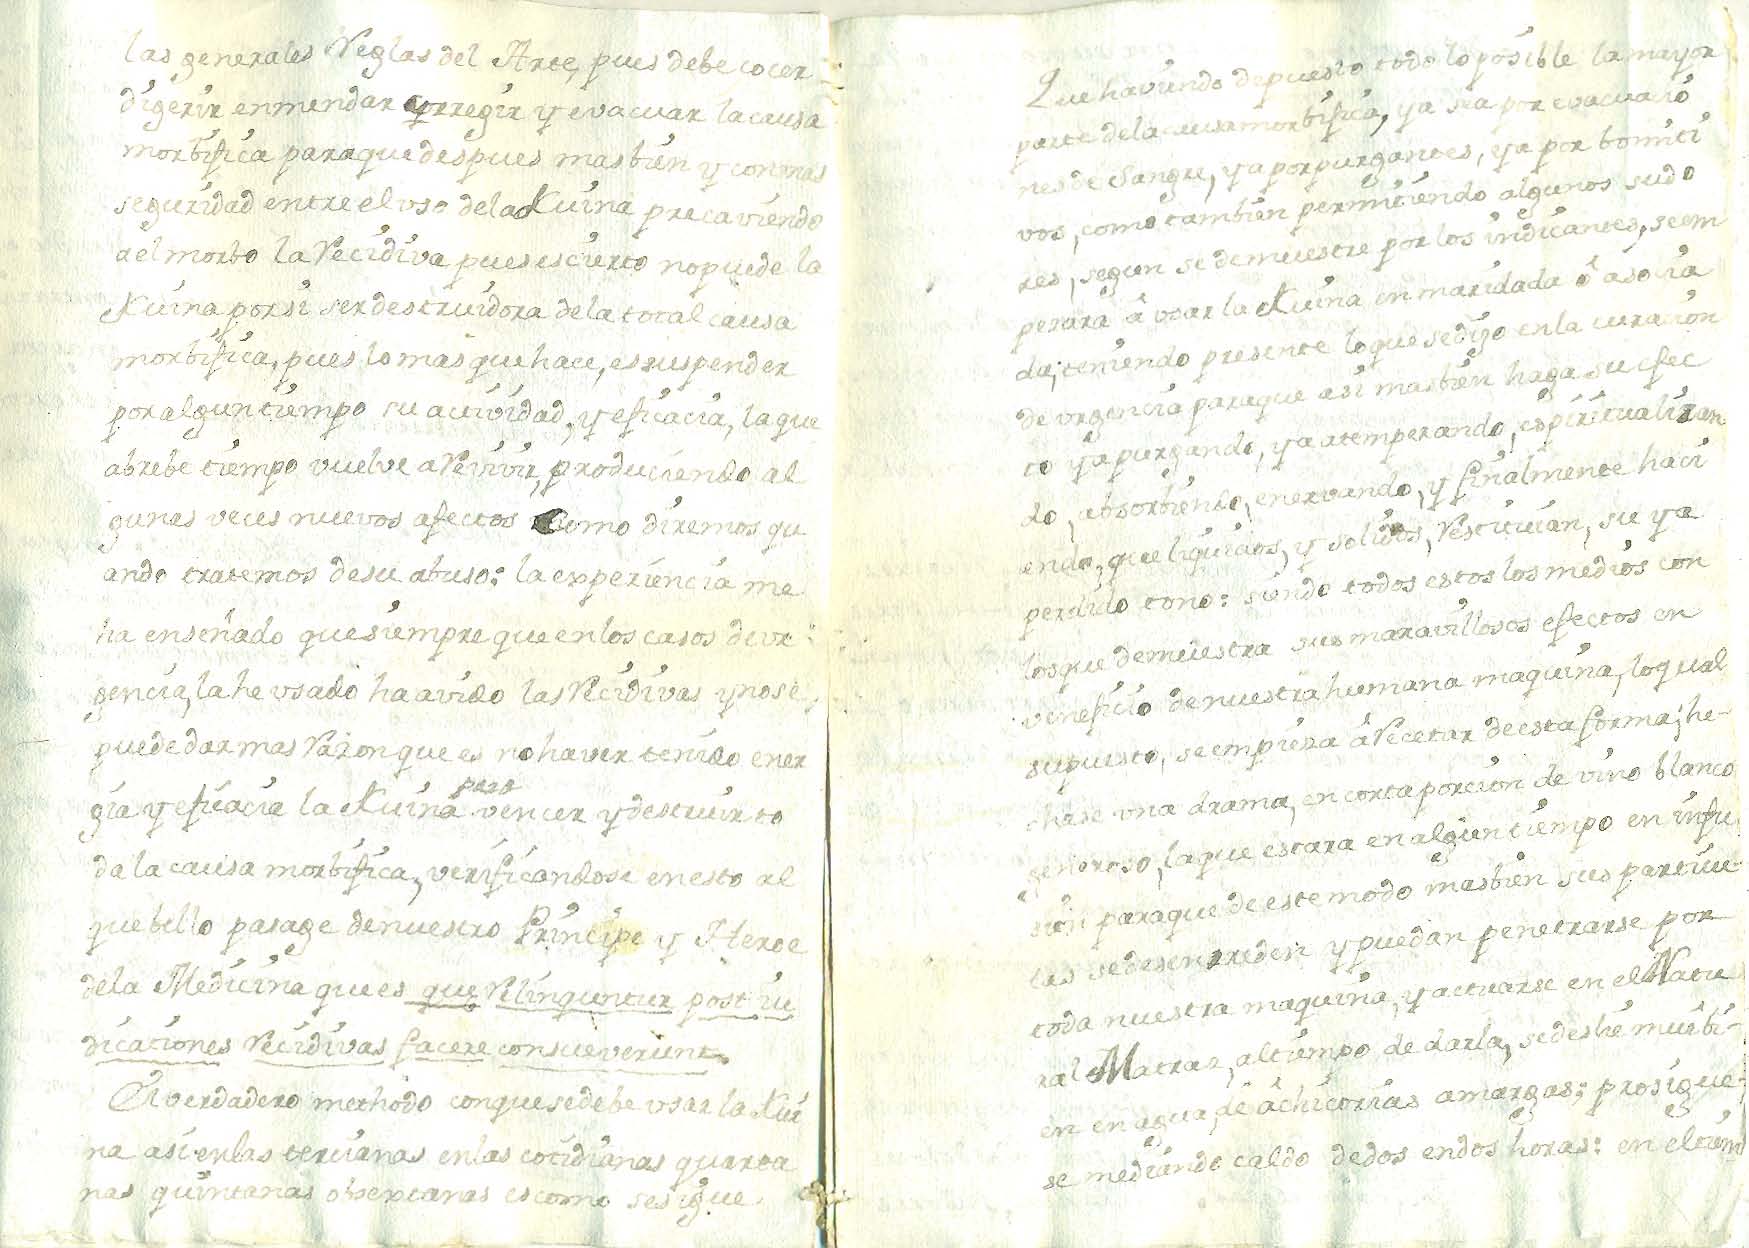 las generales Reglas del Arte, pues debe cocer
digerir enmendar corregir y evacuar la causa
morbifica paraque despues mas bien y con mas
seguridad entre el uso dela Kuina precaviendo
ael morbo la Recidiva pues es cierto no puede la
Kuina por si ser destruidora dela total causa
morbifica, pues lo mas que hace, es suspender
por algun tiempo su actividad, y eficacia, la que
abrebe tiempo vuelve a Revivir, produciendo al
gunas veces nuevos afectos como diremos qu
ando tratemos desu abuso: la experiencia me
ha enseñado que siempre que en los casos de ur
gencia, la he usado ha avido las Recidivas y no se
puede dar mas Razon que es no haver tenido ener
gia y eficacia la Kuina para vencer y destruir to
da la causa morbifica, verificandose en esto al
quebello pasage denuestro Principe y Heroe
dela Medicina que es que Relinquntur post iu
dicationes Recidivas facere consueverunt.
El verdadero methodo conque sedebe usar la Kui
na asi enlas tercianas enlas cotidianas quarta
nas quintanas o sextanas es como se sigue
Que haviendo depuesto todo lo posible la mayor
parte dela causa morbifica, ya sea por evacuacio
nes de Sangre, ya por purgantes, ya por bomiti
vos, como tambien permitiendo algunos sudo
res, segun se demuestre por los indicantes, se em
perara â usar la Kuina en maridada ô asocia
da; teniendo presente lo que se digo en la curacion
de urgencia paraque asi mas bien haga su efec
to ya purgando, ya atemperando, espiritualizan
do, absorbiendo, enervando, y finalmente haci
endo, que liquidos, y solidos, Restituian, su ya
perdido tono: siendo todos estos los medios con
los que demuestra sus maravillosos efectos en
veneficio de nuestra humana maquina, lo qual
supuesto, se empieza â Recetar de esta forma; he-
chase una drama, en corta porcion de vino blanco
generoso, la que estara en algun tiempo en infu
sion paraque de este modo mas bien sus particu-
las se desenreden y puedan penetrarse por
toda nuestra maquina, y actuarse en el Natu
ral Matraz, al tiempo de darla, se deslie mui bi-
en en agua de achicorias amargas; prosigue-
se mediando caldo de dos en dos horas: en el tiem